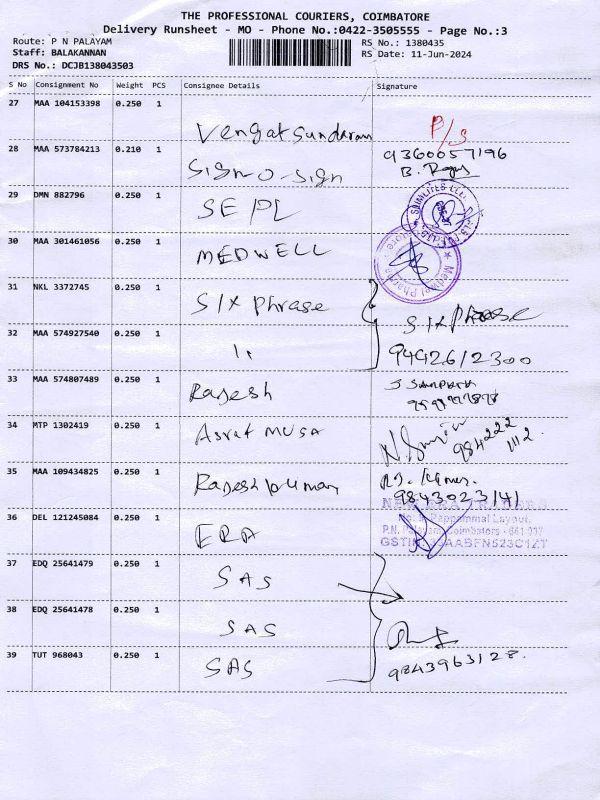 THE PROFESSIONAL COURIERS, COIMBATORE
Delivery Runsheet - MO - Phone No.:0422-3505555 - Page No.:3
Route: P N PALAYAM
Staff: BALAKANNAN
DRS No.: DCJB138043503
RS No.: 1380435
RS Date: 11-Jun-2024
S No Consignment No Weight PCS Consignee Details Signature
27 MAA 104153398 0.250 1
Vengatsundaram P/S
28 MAA 573784213 0.210 1 9360057196
Sign-O-Sign B.
29 DMN 882796 0.250 1
SEPL
30 MAA 301461056 0.250 1
MEDWELL
31 NKL 3372745 0.250 1
Six Phrase Six Phrase
32 MAA 574927540 0.250 1
9492612300
33 MAA 574807489 0.250 1
Rajesh
34 MTP 1302419 0.250 1
Asraf MUSA 984222
35 MAA 109434825 0.250 1
Rajeshkumar 9843023141
36 DEL 121245084 0.250 1
ERA
P.N. Coimbatore - 641 037
37 EDQ 25641479 0.250 1
SAS
38 EDQ 25641478 0.250 1
SAS
39 TUT 968043 0.250 1
SAS 9843963128.